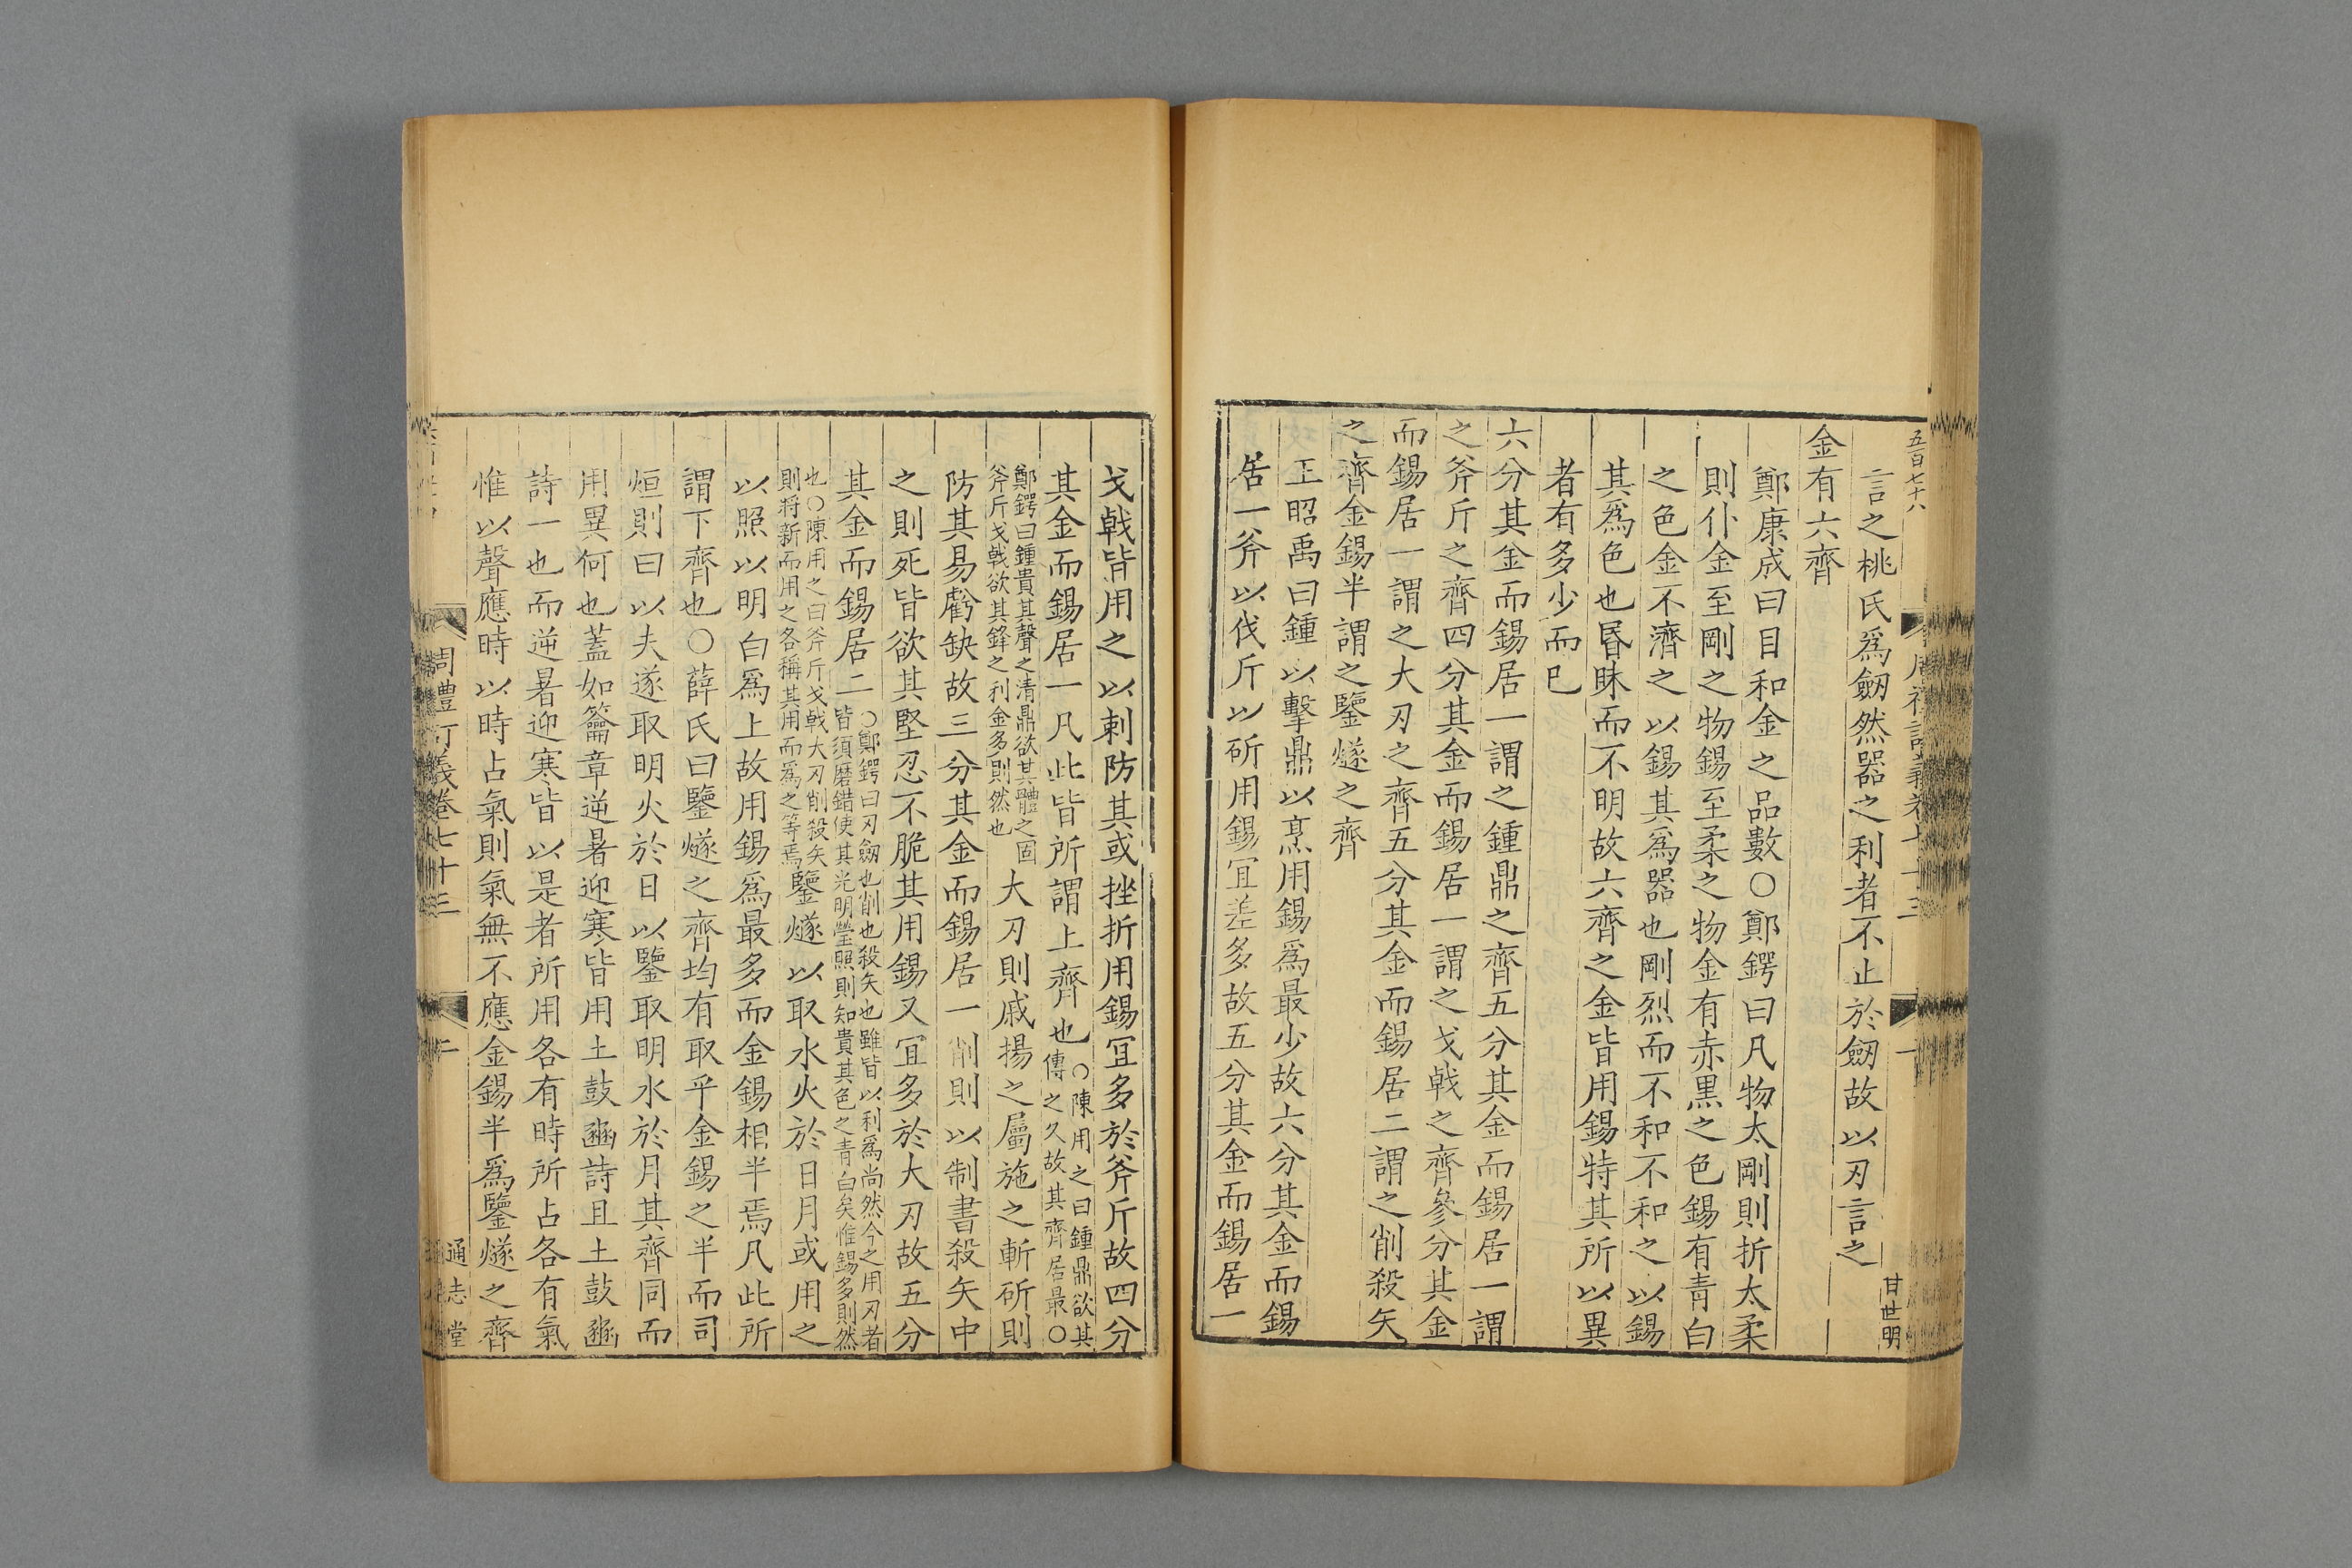 五百七十八
言之桃氏爲劒然器之利者不止於劒故以刃言之
金有六齊
鄭康成曰目和金之品數○鄭鍔曰凡物太剛則折太柔
則仆金至剛之物錫至柔之物金有赤黑之色錫有青白
之色金不濟之以錫其爲器也剛烈而不和不和之以錫
其爲色也昬昧而不明故六齊之金皆用錫特其所以異
者有多少而巳
六分其金而錫居一謂之鍾鼎之齊五分其金而錫居一謂
之斧斤之齊四分其金而錫居一謂之戈戟之齊參分其金
而錫居一謂之大刃之齊五分其金而錫居二謂之削殺矢
之齊金錫半謂之鑒燧之齊
王昭禹曰鍾以擊鼎以烹用錫爲最少故六分其金而錫
居一斧以伐斤以斫用錫宜差多故五分其金而錫居一
甘世明
戈戟皆用之以刺防其或挫折用錫宜多於斧斤故四分
其金而錫居一凡此皆所謂上齊也○陳用之曰鍾鼎欲其
傳之久故其齊居最○
鄭鍔曰鍾貴其聲之清鼎欲其體之固
斧斤戈戟欲其鋒之利金多則然也
大刃則戚揚之屬施之斬斫則
防其易虧缺故三分其金而錫居一削則以制書殺矢中
之則死皆欲其堅忍不脆其用錫又宜多於大刃故五分
其金而錫居二○鄭鍔曰刃劒也削也殺矢也雖皆以利爲尚然今之用刃者
皆須磨錯使其光明瑩照則知貴其色之青白矣惟錫多則然
也○陳用之曰斧斤戈戟大刃削殺矢
則將新而用之各稱其用而爲之等焉
鑒燧以取水火於日月或用之
以照以明白爲上故用錫爲最多而金錫相半焉凡此所
謂下齊也○薛氏曰鑒燧之齊均有取乎金錫之半而司
烜則曰以夫遂取明火於日以鑒取明水於月其齊同而
用異何也蓋如籥章逆暑迎寒皆用土鼓豳詩且土鼓豳
詩一也而逆暑迎寒皆以是者所用各有時所占各有氣
惟以聲應時以時占氣則氣無不應金錫半爲鑒燧之齊
周禮訂義卷七十三
二
通志堂